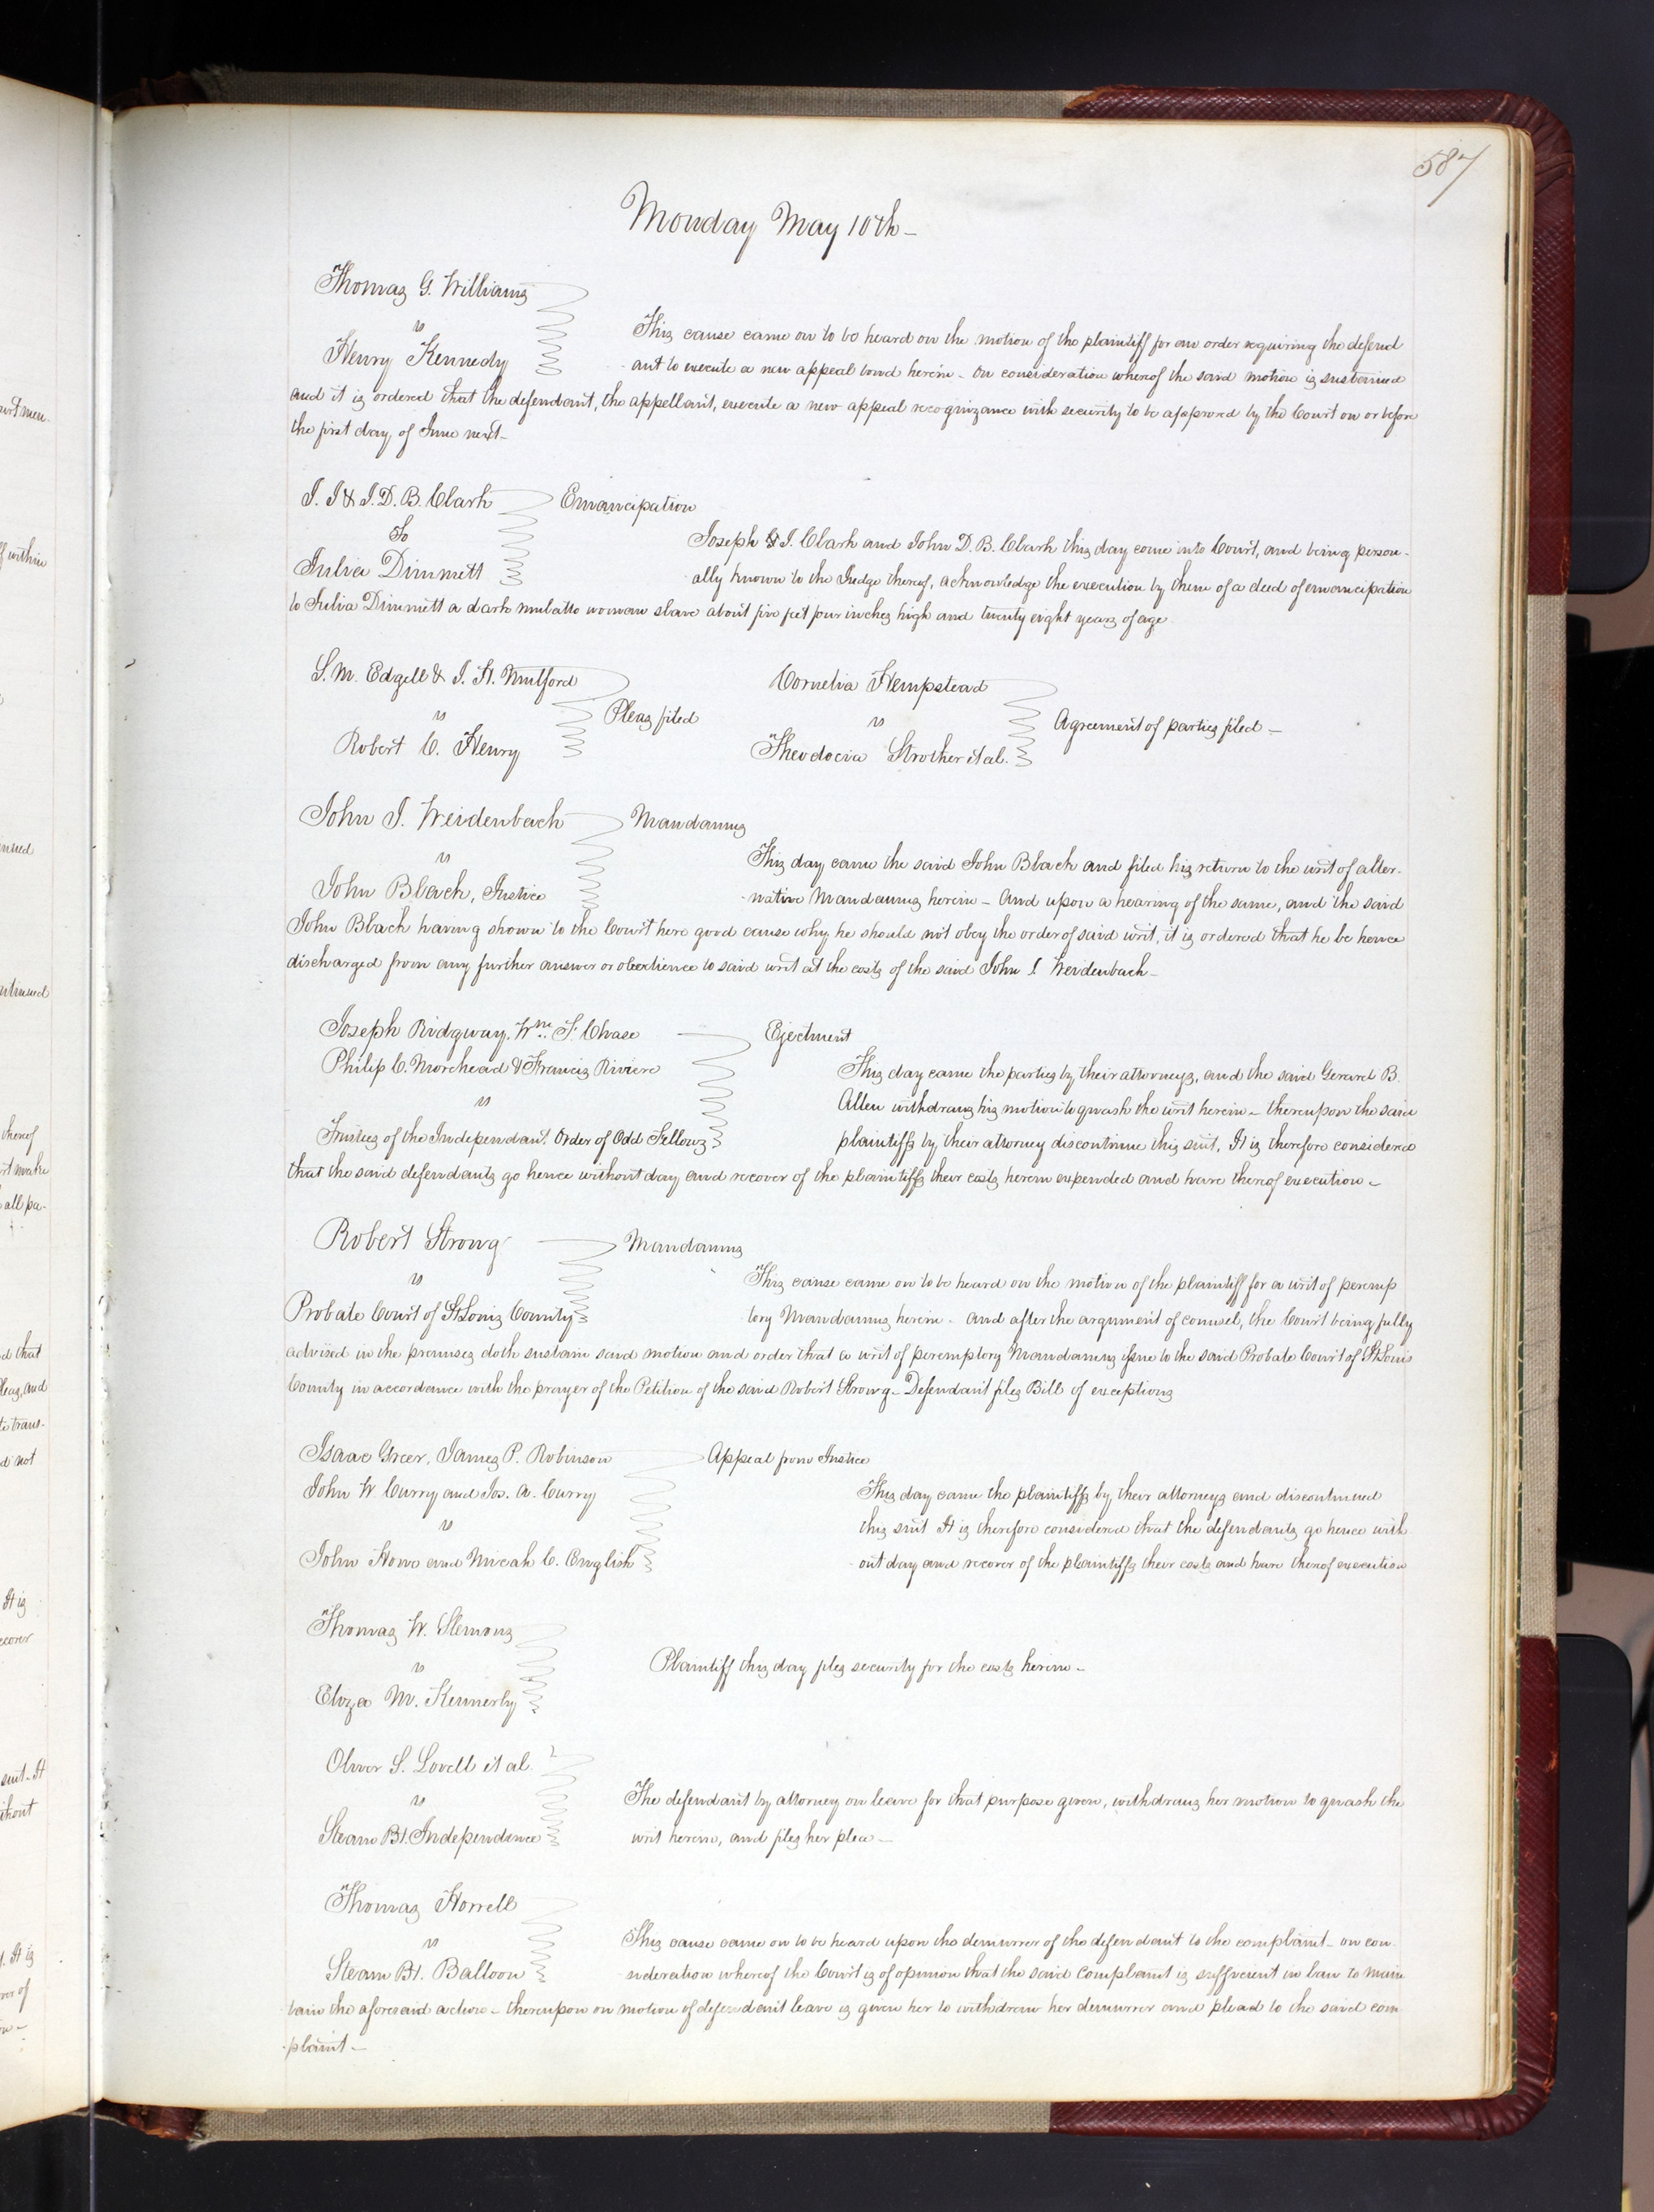 587
Monday May 10th -
Thomas G. Williams
vs
Henry Kennedy
This cause came on to be heard on the motion of the plaintiff for an order requiring the defend
ant to execute a new appeal bond herein - On consideration whereof the said motion is sustained
and it is ordered that the defendant, the appellant, execute a new appeal recognizance with security to be approved by the Court on or before
the first day of June next -
J. J & J. D. B. Clark
To
Julia Dimmett
Emancipation
Joseph J. Clark and John D. B. Clark this day come into Court, and being person-
ally known to the Judge thereof, acknowledge the execution by them of a deed of emancipation
to Julia Dimmett a dark mulatto woman slave about five feet four inches high and twenty eight years of age
S. M. Edgell & J. H. Mulford
vs
Robert C. Henry
Pleas filed
Cornelia Hempstead
vs
Theodocia Strother et al.
Agreement of parties filed -
John J. Weidenbach
vs
John Black, Justice
Mandamus
This day came the said John Black and filed his return to the writ of alter-
native Mandamus herein - And upon a hearing of the same, and the said
John Black having shown to the Court here good cause why he should not obey the order of said writ, it is ordered that he be hence
discharged from any further answer or obedience to said writ at the costs of the said John J. Weidenbach -
Joseph Ridgway, Wm. S. Chase
Philip C. Morehead & Francis Riviere
vs
Trustees of the Independant Order of Odd Fellows
Ejectment
This day came the parties by their attorneys, and the said Gerard B.
Allen withdraws his motion to quash the writ herein - thereupon the said
plaintiffs by their attorney discontinue this suit, It is therefore considered
that the said defendants go hence without day and recover of the plaintiffs their costs herein expended and have thereof execution -
Robert Strong
vs
Probate Court of St Louis County
Mandamus
This cause came on to be heard on the motion of the plaintiff for a writ of peremp
tory Mandamus herein - and after the argument of counsel, the Court being fully
advised in the premises doth sustain said motion and order that a writ of peremptory Mandamus issue to the said Probate Court of St Louis
County in accordance with the prayer of the Petition of the said Robert Strong - Defendant files Bill of exceptions
Isaac Greer, James P. Robinson
John W. Curry and Jos. A. Curry
vs
John Howe and Micah C. English
Appeal from Justice
This day came the plaintiffs by their attorneys and discontinued
this suit It is therefore considered that the defendants go hence with
out day and recover of the plaintiffs their costs and have thereof execution
Thomas W. Slemons
vs
Eliza M. Kennerly
Plaintiff this day files security for the costs herein -
Oliver S. Lovell et al.
vs
Steam Bt. Independence
The defendant by attorney on leave for that purpose given, withdraws her motion to quash the
writ herein, and files her plea -
Thomas Horrell
vs
Steam Bt. Balloon
This cause came on to be heard upon the demurrer of the defendant to the complaint - on con
sideration whereof the Court is of opinion that the said Complaint is sufficient in law to main
tain the aforesaid action - thereupon on motion of defendant leave is given her to withdraw her demurrer and plead to the said com
plaint -